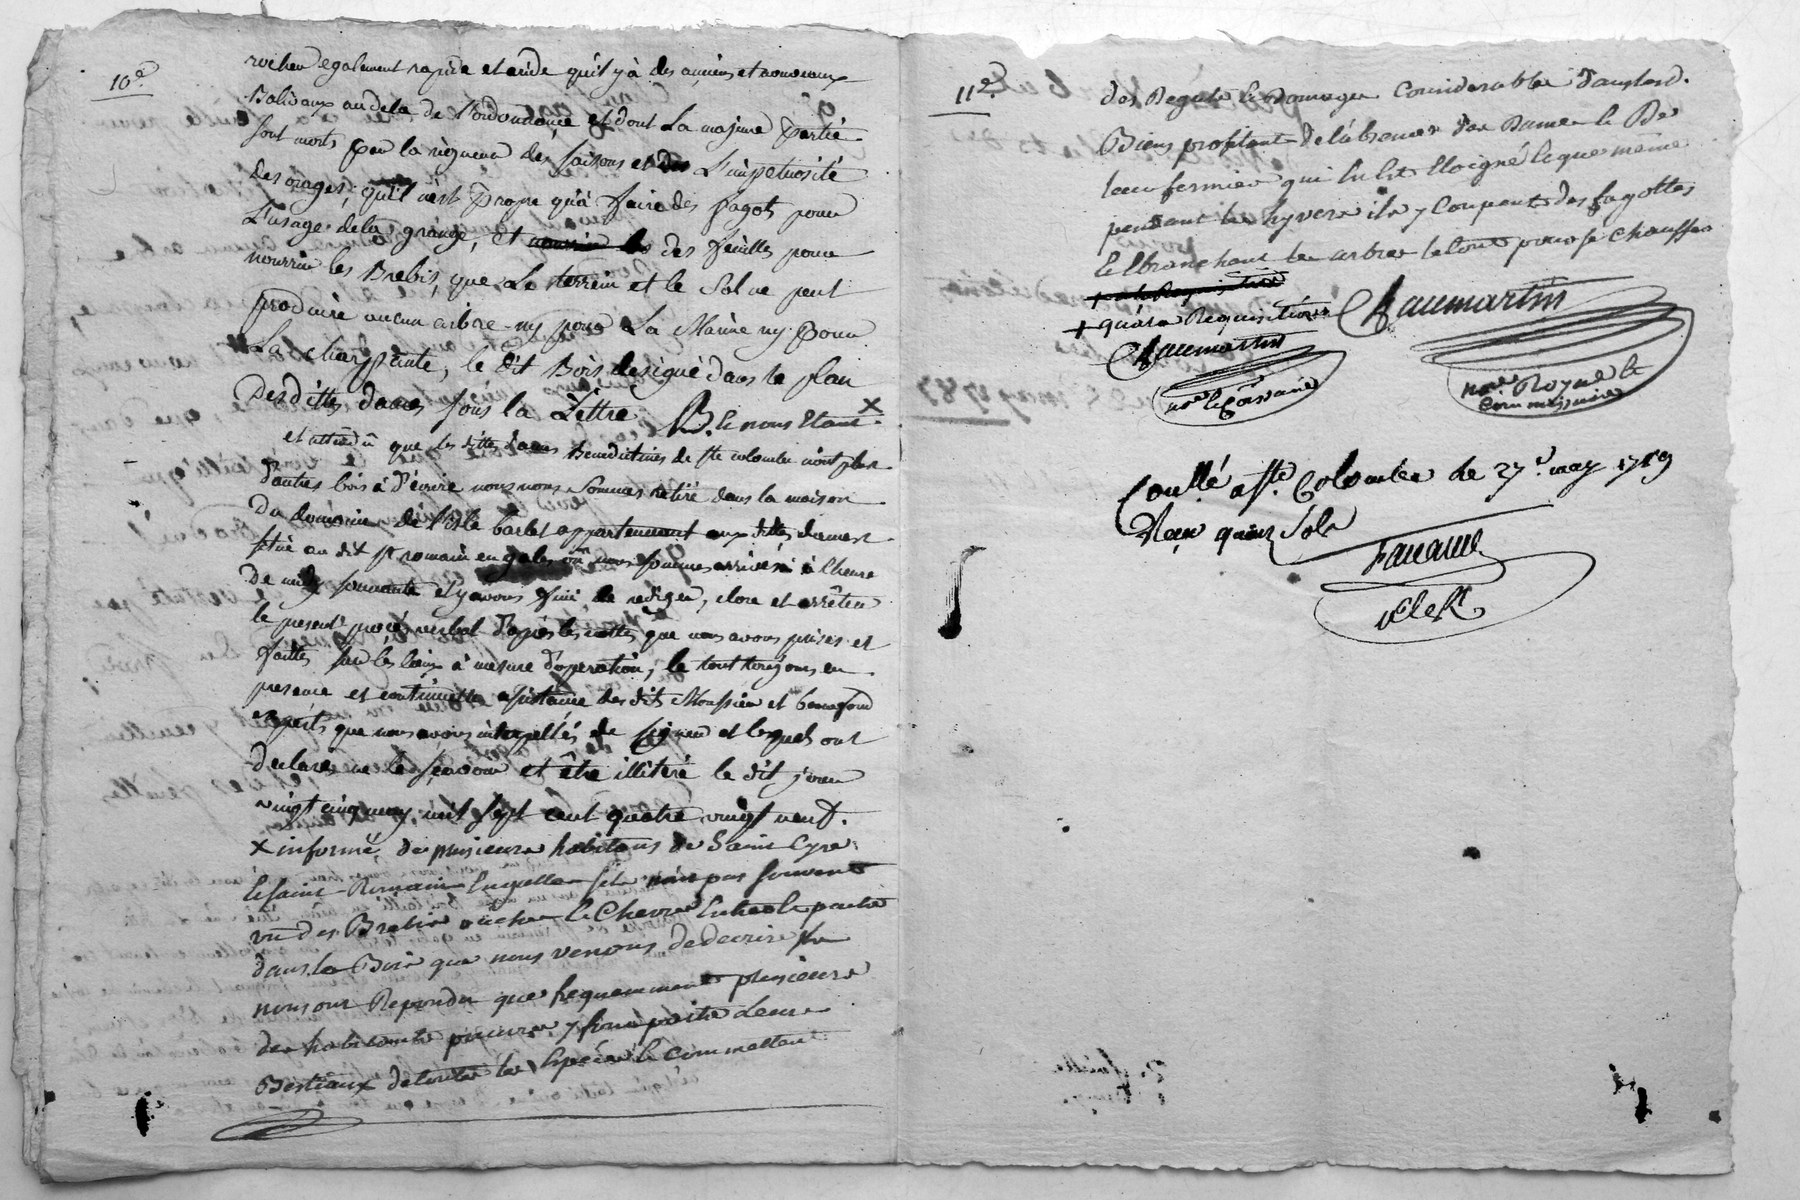 10e.
rocher egalement rapide et aride quil y à des anciens et nouveaux
Balivaux au dela de L'ordonnance et dont La majeure Partie
sont morts par la rigueur des saisons et L'impetuosité
des orages; qu'il n'est Propre qu'à faire des fagots pour
L'usage de la grange, et des feuilles pour
nourrir les Brebis, que Le terrein et le Sol ne peut
produire aucun arbre ny pour La Marine ny Pour
La charpente, le dit Bois designé dans le plan
Desdittes dames sous la Lettre B. et nous Etant X
et attendû que les dittes dames Benedictines de Ste colombe n'ont plus
d'autres bois à d'écrire nous nous sommes retiré dans la maison
Du domaine de l'isle barbet appartenant aux dittes dames
situé au dit St romain en gales où nous sommes arrivés à l'heure
De midy sonnante et y avons fini de rediger, clore et arrêter
le present procés verbal d'après les nottes que nous avons prises et
faittes sur les lieux à mesure d'operation, le tout toujours en
presence et continuelle assistance des dits Moussier et bonnefond
experts que nous avons interpellés de signer et lesquels ont
declarés ne le sçavoir et être illiteré le dit jour
vingt cinq may mil sept cent quatre vingt neuf.
X informé de plusieurs habitans de Saint Cyre
et saint Romain Lesquelles sils nont pas souvent
vu des Brebis vaches et Chevres Entrer le paitre
dans le Bois que nous venons de decrire
nous ont Repondu que frequemment plusieurs
des habitants pauvres y font paitre Leurs
Bestiaux de toutes les Espèces et commettent
11e.
des Degats et Domages Considerables dautend.
Biens profitant de labsence des Dames et De
leur fermier qui en Est Eloigné et que meme
pendant les hyvers ils y Coupent des fagottes
et Ebranchent les arbres le tout pour se chauffer
+ quatre Requisitions
Chaumartin
nore et Commissaire
Chaumartin
nore Royal et
Commissaire
Conllé a Ste Colombe le 27e. may 1789
Reçu quinze Sols